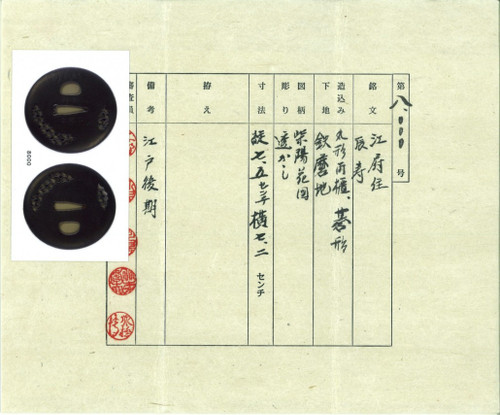 第八、〇〇〇号
銘文 江府住
辰寿
造込み 丸形両櫃、碁形
下地 鉄磨地
図柄 紫陽花図
彫り 透かし
寸法 縦七、五センチ 横七、二 センチ
拵え
備考 江戸後期
審査員
8000